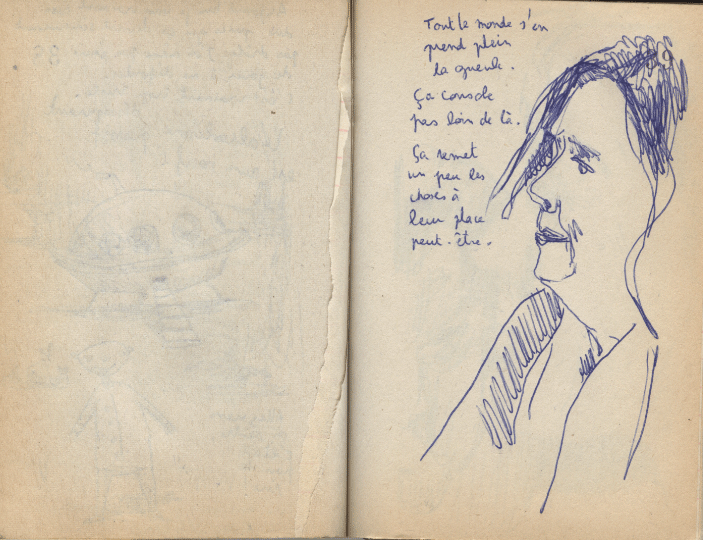 Tout le monde s'en
prend plein
la gueule.
Ça console
pas loin de là.
Ça remet
un peu les
choses à
leur place
peut-être.